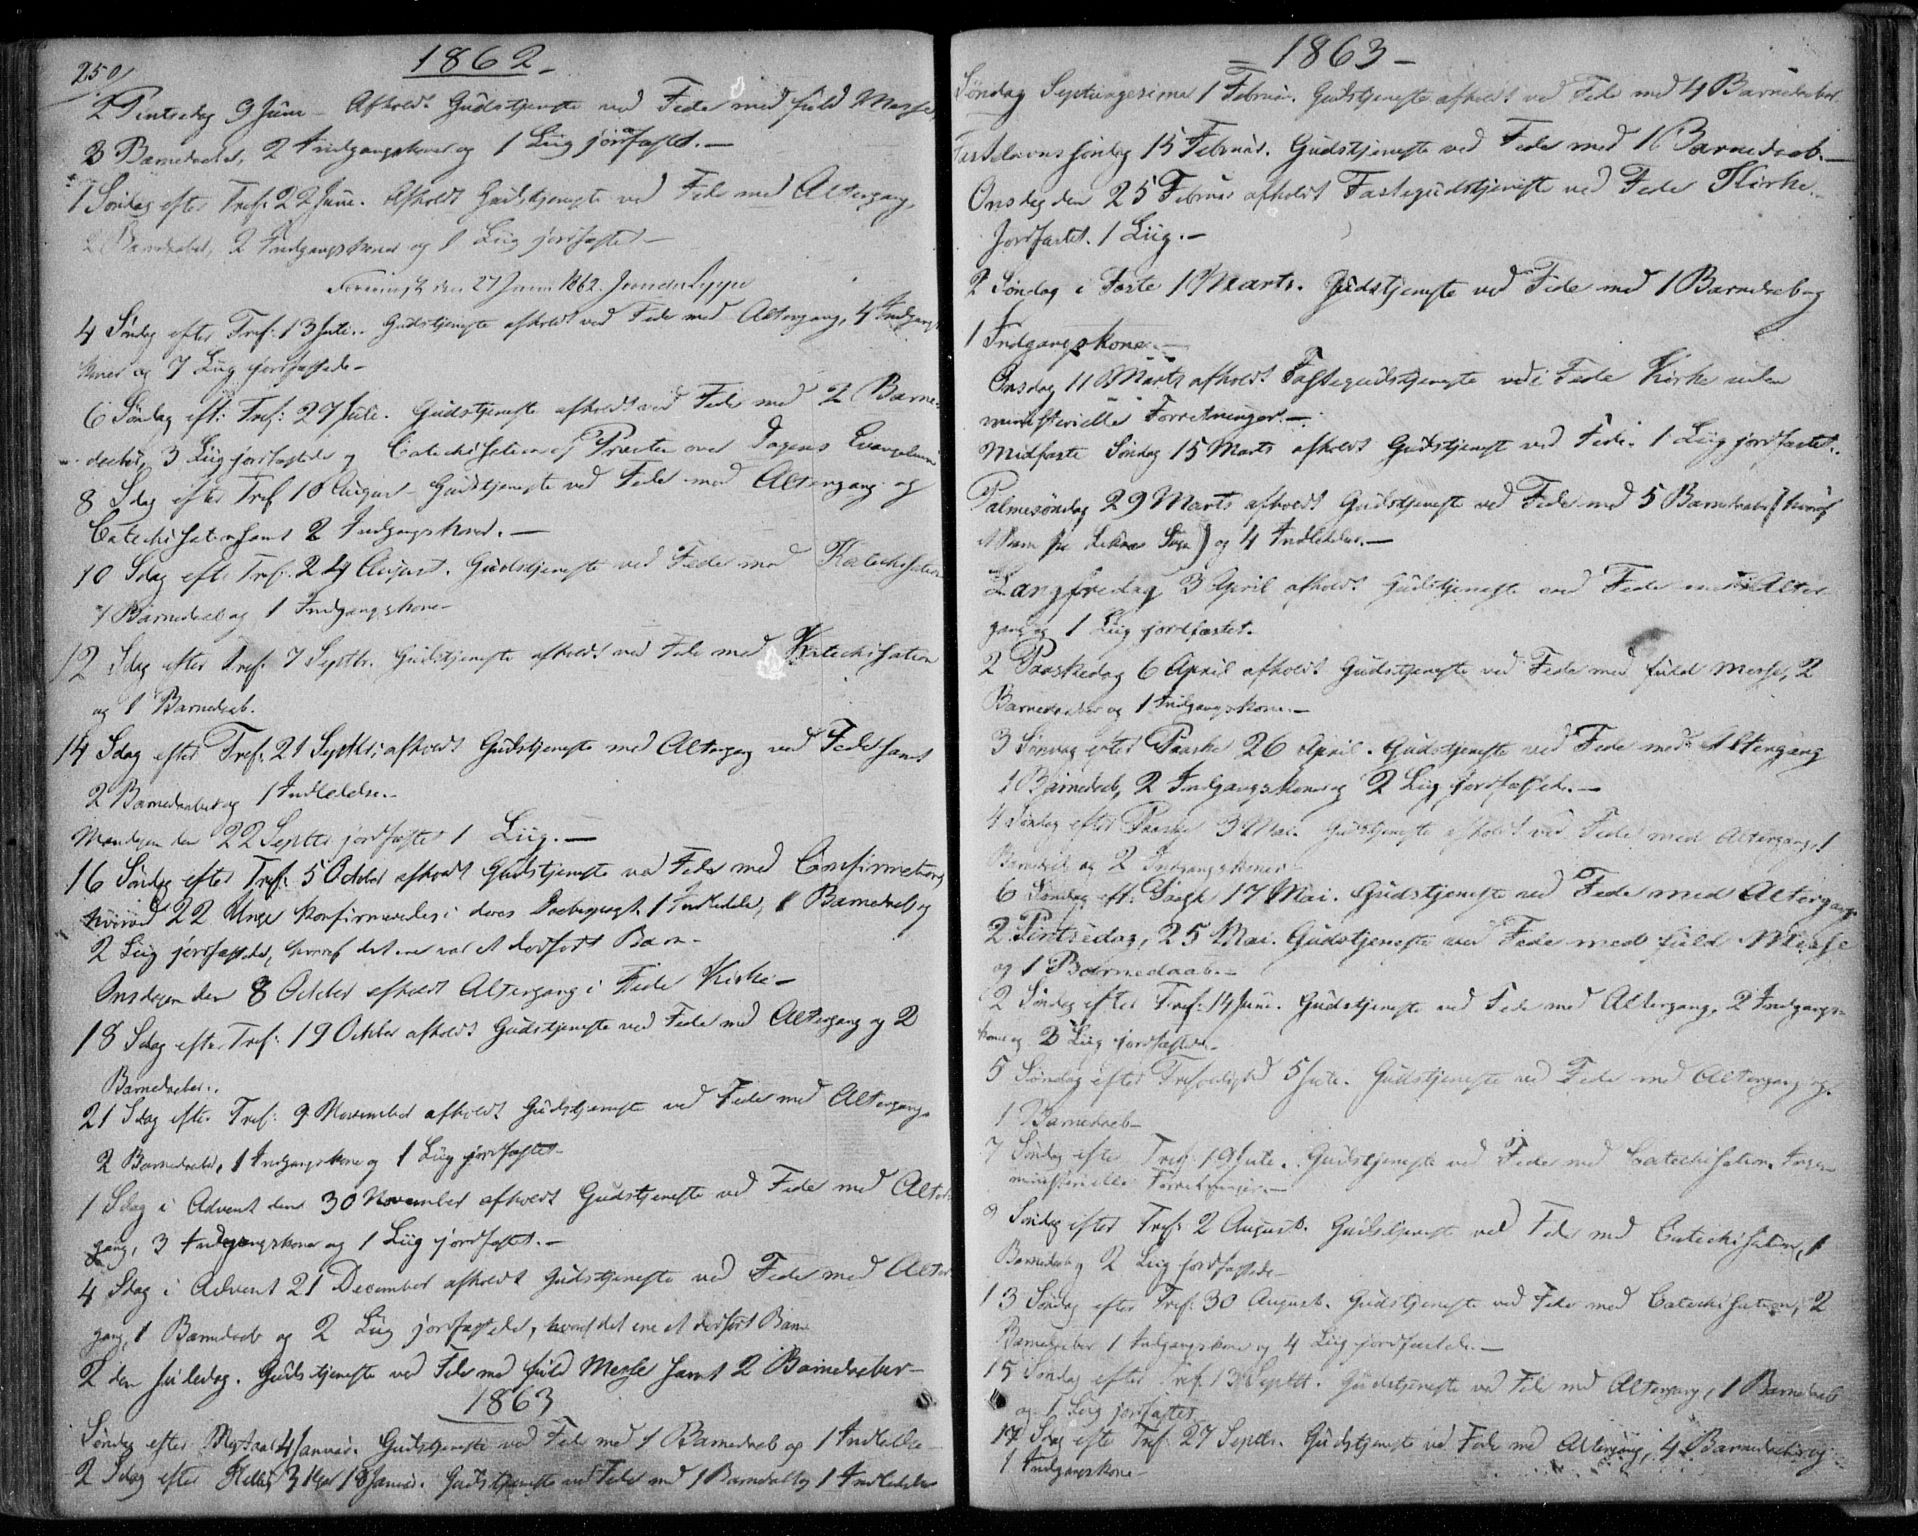 250/
1862 –
2 Pintsedag 9 Juni – Afholdt Gudstjeneste ved Fede med fuld Messe,
3 Barnedaaber, 2 Indgangskoner og 1 Liig jordfæstet. –
1 Søndag efter Tref: 22 Juni. Afholdt Gudstjeneste ved Fede med Altergang,
2 Barnedaaber, 2 Indgangskoner og 1 Liig jordfæstet –
den 27 Juni 1862.
4 Søndag efter Tref: 13 Juli. Gudstjeneste afholdt ved Fede med Altergang, 4 Indgangs
koner og 7 Liig jordfæstede –
6 Søndag eft: Tref: 27 Juli. Gudstjeneste afholdt ved Fede med 2 Barne-
daaber, 3 Liig jordfæstede og Catechisation af Præsten over Dagens Evangelium
8 Sdag efter Tref 10 August – Gudstjeneste ved Fede med Altergang og
Catechisation samt 2 Indgangskoner. –
10 Sdag eft: Tref: 24 August. Gudstjeneste ved Fede med Katechisation
1 Barnedaab og 1 Indgangskone –
12 Sdag efter Tref: 7 Septbr. Gudstjeneste afholdt ved Fede med Katechisation
og 1 Barnedaab.
14 Sdag efter Tref: 21 Septbr: afholdt Gudstjeneste med Altergang ved Fede samt
2 Barnedaaber og 1 Indledelse. –
Mandagen den 22 Septbr jordfæstet 1 Liig. –
16 Søndag efter Tref: 5 October afholdt Gudstjeneste ved Fede med Confirmation,
hvorved 22 Unge konfirmeredes i deres Daabspagt. 1 Indledelse, 1 Barnedaab og
2 Liig jordfæstede, hvoraf det ene var et dødfødt Barn –
Onsdagen den 8 October afholdt Altergang i Fede Kirke –
18 Sdag efter Tref: 19 October afholdt Gudstjeneste ved Fede med Altergang og 2
Barnedaaber.
21 Sdag efter Tref: 9 November afholdt Gudstjeneste ved Fede med Altergang
2 Barnedaaber, 1 Indgangskone og 1 Liig jordfæstet –
1 Sdag i Advent den 30 November afholdt Gudstjeneste ved Fede med Alter
gang, 3 Indgangskoner og 1 Liig jordfæstet. –
4 Sdag i Advent 21 December afholdt Gudstjeneste ved Fede med Alter
gang, 1 Barnedaab og 2 Liig jordfæstede, hvoraf det ene et dødfødt Barn
2den Juledag. Gudstjeneste ved Fede med fuld Messe samt 2 Barnedaaber –
1863
Søndag efter Nytaar 4 Januar. Gudstjeneste ved Fede med 1 Barnedaab og 1 Indledelse
2 Sdag efter Hellig 3 Konger 18 Januar. Gudstjeneste ved Fede med 1 Barnedaab og 1 Indledelse
1863 –
Søndag Septuagesima 1 Februar. Gudstjeneste afholdt ved Fede med 4 Barnedaaber.
Fastelavns søndag 15 Februar. Gudstjeneste ved Fede med 1 Barnedaab. –
Onsdag den 25 Februar afholdt Fastegudstjeneste ved Fede Kirke.
Jordfæstet 1 Liig. –
2 Søndag i Faste 1 Marts. Gudstjeneste ved Fede med 1 Barnedaab og
1 Indgangskone. –
Onsdag 11 Marts afholdt Fastegudstjeneste i Fede Kirke uden
ministerielle Forretninger. –
Midfaste Søndag 15 Marts afholdt Gudstjeneste ved Fede. 1 Liig jordfæstet.
Palmesøndag 29 Marts afholdt Gudstjeneste ved Fede med 5 Barnedaaber (hvoraf
et Barn fra Sogn) og 4 Indledelser. –
Langfredag 3 April afholdt Gudstjeneste ved Fede med Alter
gang og 1 Liig jordfæstet.
2 Paaskedag 6 April afholdt Gudstjeneste ved Fede med fuld Messe, 2
Barnedaaber og 1 Indgangskone. –
3 Søndag efter Paaske 26 April. Gudstjeneste ved Fede med Altergang
1 Barnedaab, 2 Indgangskoner og 2 Liig jordfæstede. –
4 Søndag efter Paaske 3 Mai. Gudstjeneste afholdt ved Fede med Altergang, 1
Barnedaab og 2 Indgangskoner
6 Søndag eft: Paaske 17 Mai. Gudstjeneste ved Fede med Altergang
2 Pintsedag, 25 Mai. Gudstjeneste ved Fede med fuld Messe
og 1 Barnedaab. –
2 Søndag efter Tref: 14 Juni. Gudstjeneste ved Fede med Altergang, 2 Indgangs-
koner og 2 Liig jordfæstede –
5 Søndag efter Trefoldighed 5 Juli. Gudstjeneste ved Fede med Altergang og
1 Barnedaab –
7 Søndag efter Tref: 19 Juli. Gudstjeneste ved Fede med Catechisation. Ingen
ministerielle Forretninger. –
9 Søndag efter Tref: 2 August. Gudstjeneste ved Fede med Catechisation, 1
Barnedaab og 2 Liig jordfæstede –
13 Søndag efter Tref: 30 August. Gudstjeneste ved Fede med Catechisation, 2
Barnedaaber 1 Indgangskone og 4 Liig jordfæstede. –
15 Søndag efter Tref. 13 Septbr. Gudstjeneste ved Fede med Altergang, 1 Barnedaab
og 1 Liig jordfæstet
17 Sdag efter Tref: 27 Septbr. Gudstjeneste ved Fede med Altergang, 4 Barnedaaber og
1 Indgangskone –